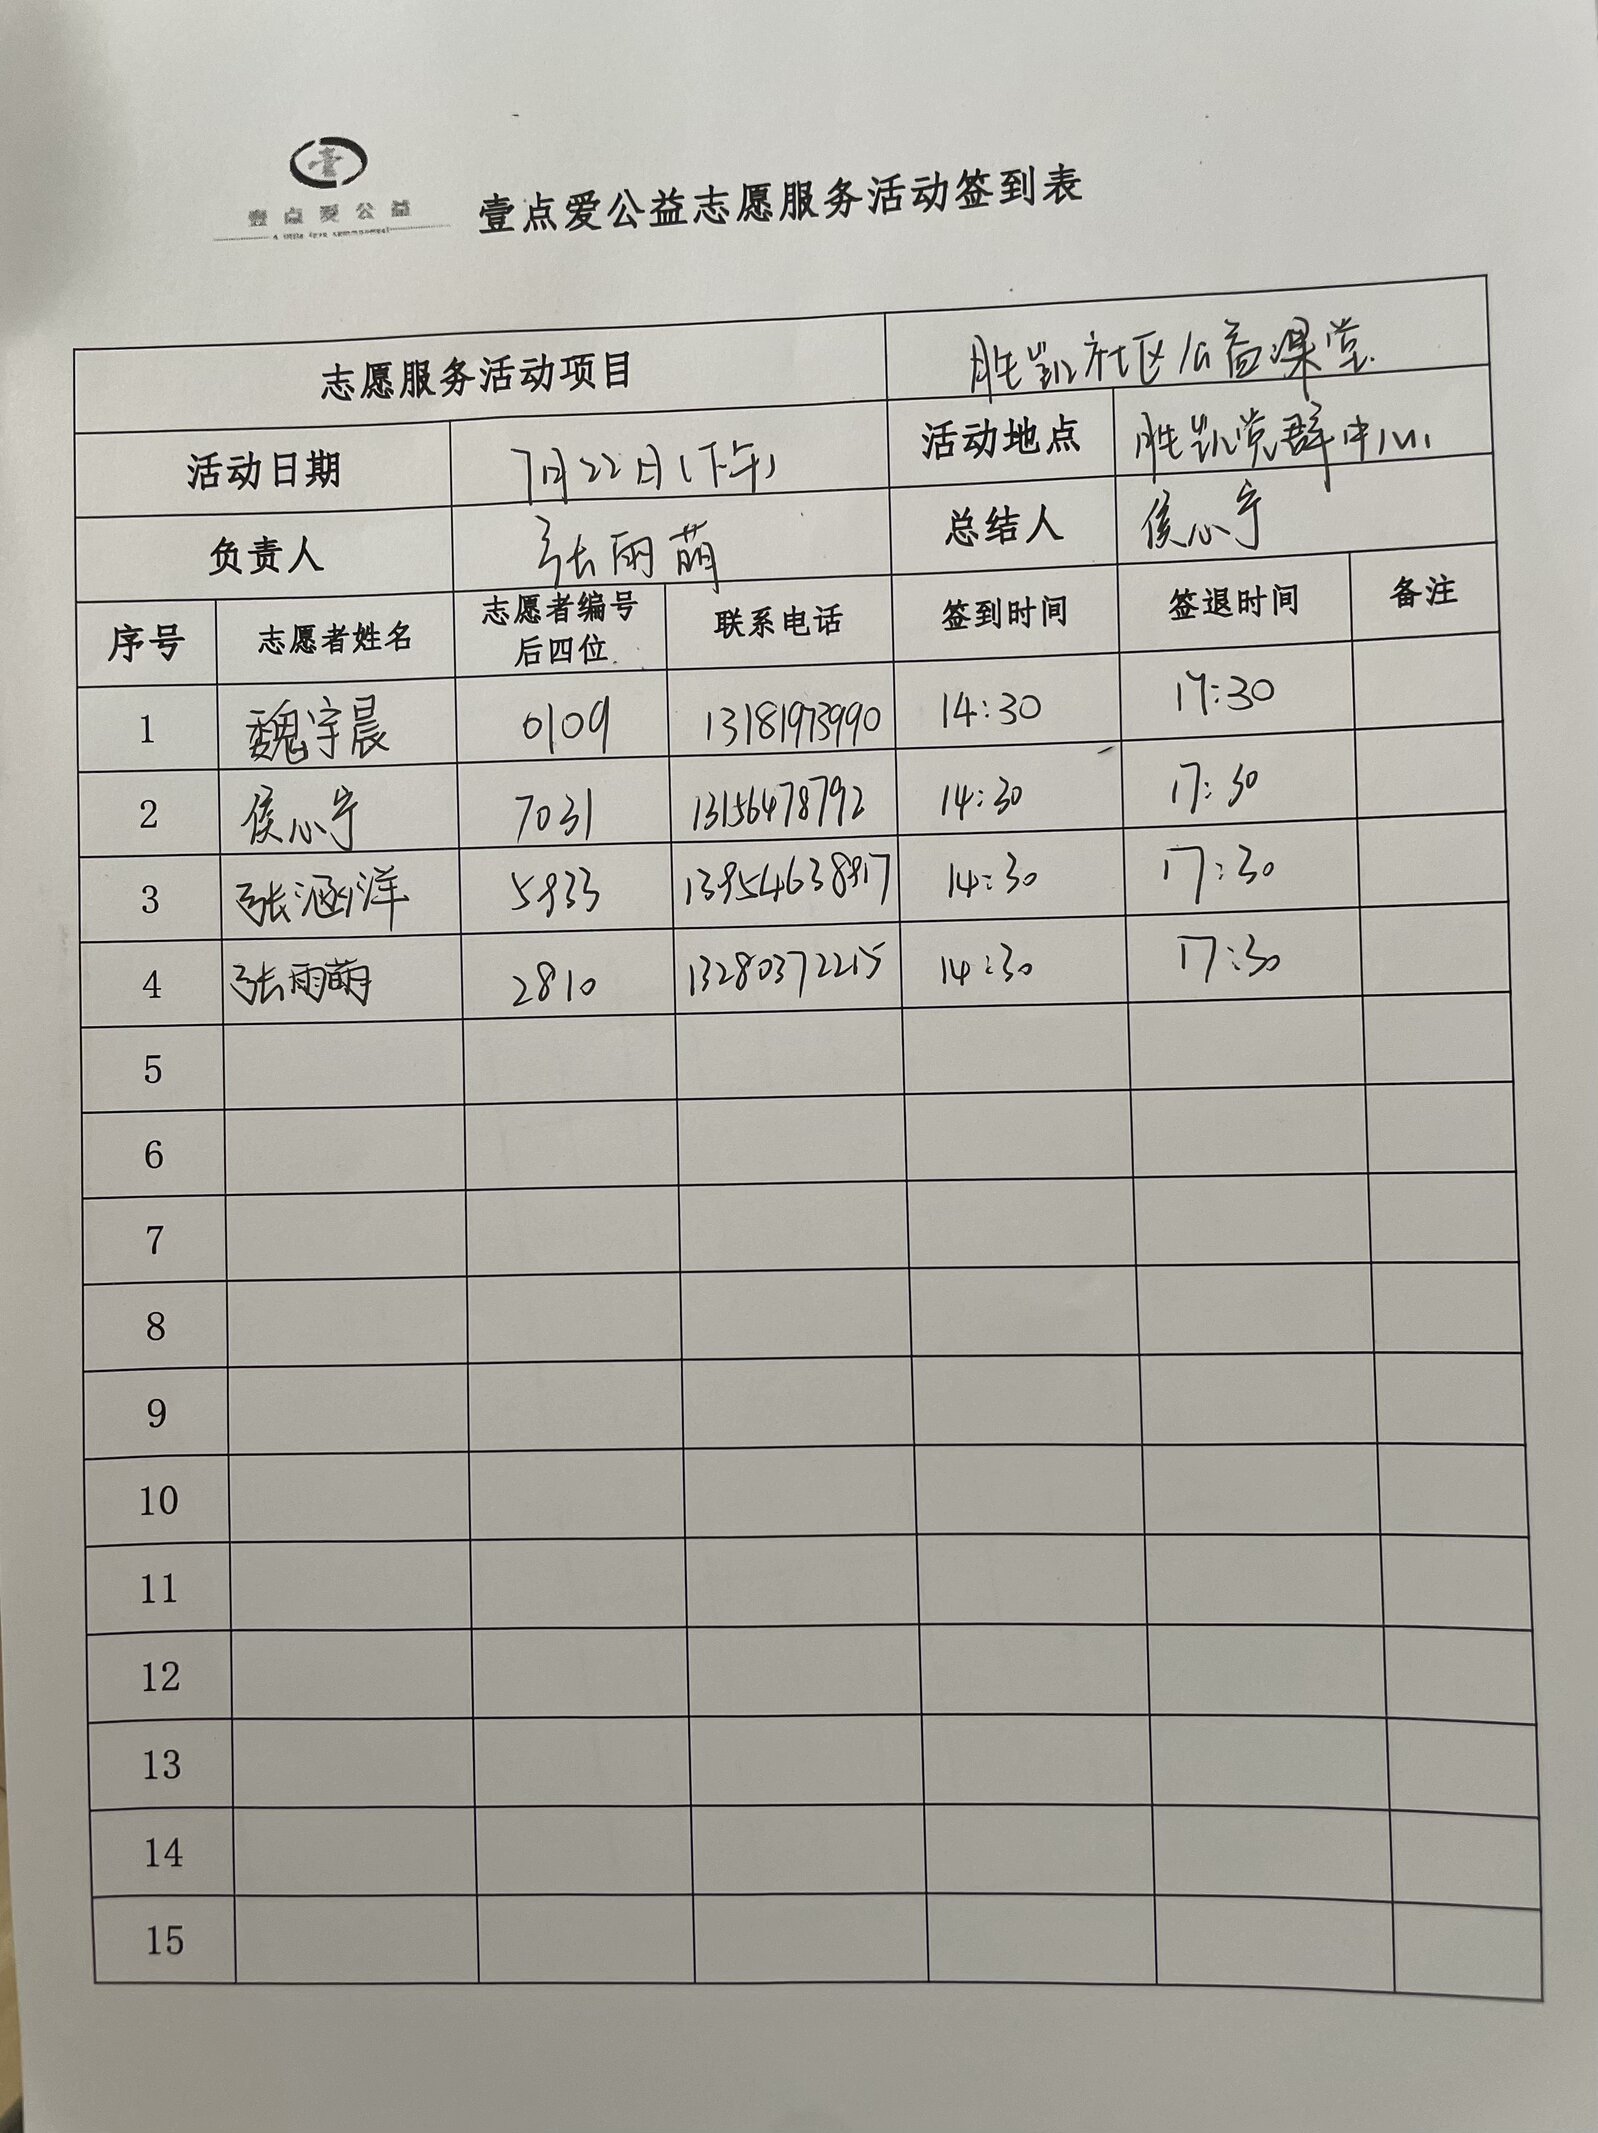 壹
壹点爱公益
壹点爱公益志愿服务活动签到表
志愿服务活动项目 胜凯社区公益课堂
活动日期 7月22日(下午) 活动地点 胜凯党群中心
负责人 张雨萌 总结人 侯心宁
序号 志愿者姓名 志愿者编号后四位 联系电话 签到时间 签退时间 备注
1 魏宇晨 0109 13181973990 14:30 17:30
2 侯心宁 7031 13156478792 14:30 17:30
3 张涵洋 5933 13954638917 14:30 17:30
4 张雨萌 2810 13280372215 14:30 17:30
5
6
7
8
9
10
11
12
13
14
15